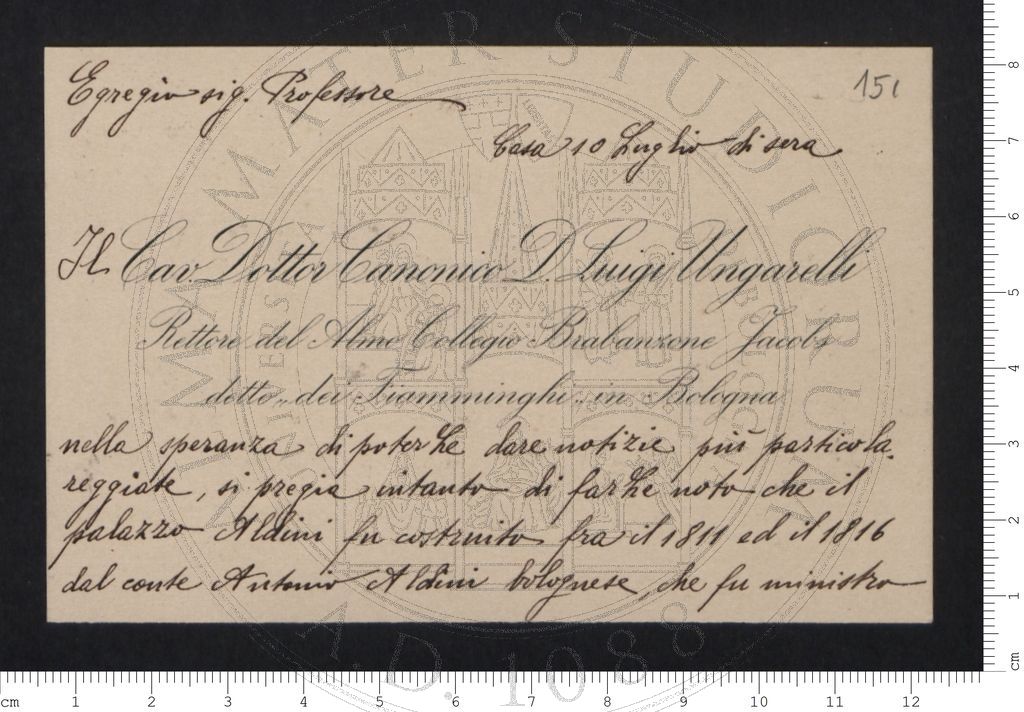 Egregio sig. Professore
151
Casa 10 Luglio di sera
Il Cav. Dottor Canonico D. Luigi Ungarelli
Rettore del Almo Collegio Brabanzone Jacobs
detto „dei Fiamminghi„ in Bologna
nella speranza di poterLe dare notizie più particola-
reggiate, si pregia intanto di farLe noto che il
palazzo Aldini fu costruito fra il 1811 ed il 1816
dal conte Antonio Aldini bolognese, che fu ministro
ALMA MATER STUDIORUM
A.D. 1088
LIBERTAS
cm 1 2 3 4 5 6 7 8 9 10 11 12
8
7
6
5
4
3
2
1
cm